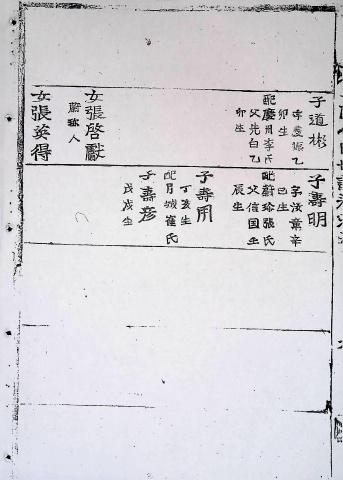 子道彬
字慶振乙
卯生
配慶州李氏
父先白乙
卯生
女張啓獻
蔚珍人
女張英得
子壽明
字汝章辛
巳生
配蔚珍張氏
父信国壬
辰生
子壽用
丁亥生
配月城崔氏
子壽彦
戊戌生